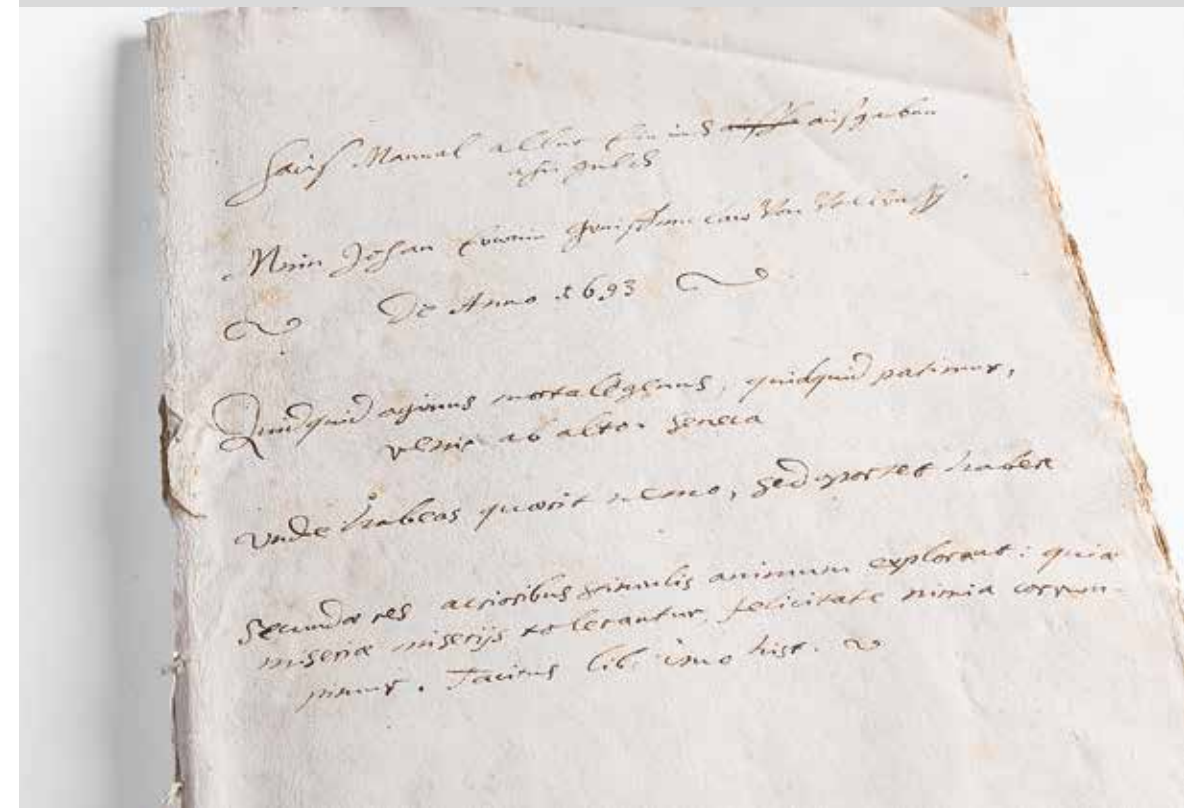 Hauß Manual aller Ein und außgaben
Mein Johan Erwein Greiffenclaw Von
De Anno 1693
Quidquid agimus mortale genus, quidquid patimur,
venit ab alto. Seneca
Vnde habeas quærit nemo, sed oportet habere
Secundæ res acrioribus stimulis animum explorant: quia
miseriæ miserijs tolerantur, felicitate nimia corrum-
pimur. Tacitus lib. imo hist.